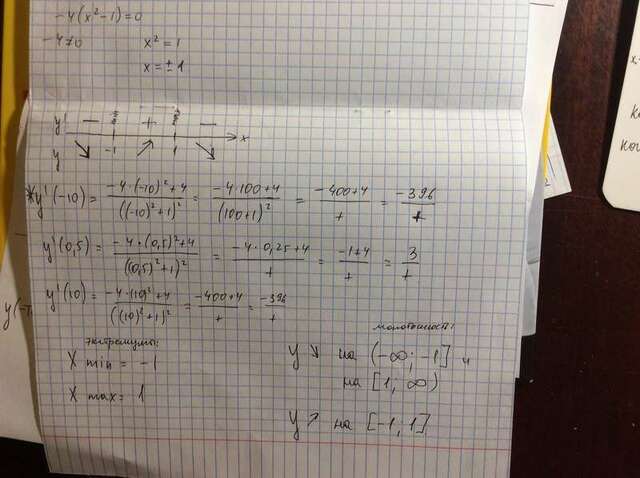 -4(x²-1)=0
-4≠0 x²=1
x=±1
y' — min + max —
-1 1 x
y ↘ ↗ ↘
*y'(-10) = (-4·(-10)²+4)/((-10)²+1)² = (-4·100+4)/(100+1)² = (-400+4)/+ = -396/+
y'(0,5) = (-4·(0,5)²+4)/((0,5)²+1)² = (-4·0,25+4)/+ = (-1+4)/+ = 3/+
y'(10) = (-4·(10)²+4)/((10)²+1)² = (-400+4)/+ = -396/+
экстремумы:
X min = -1
X max = 1
монотонность:
y ↘ на (-∞; -1] и
на [1; ∞)
y ↗ на [-1; 1]